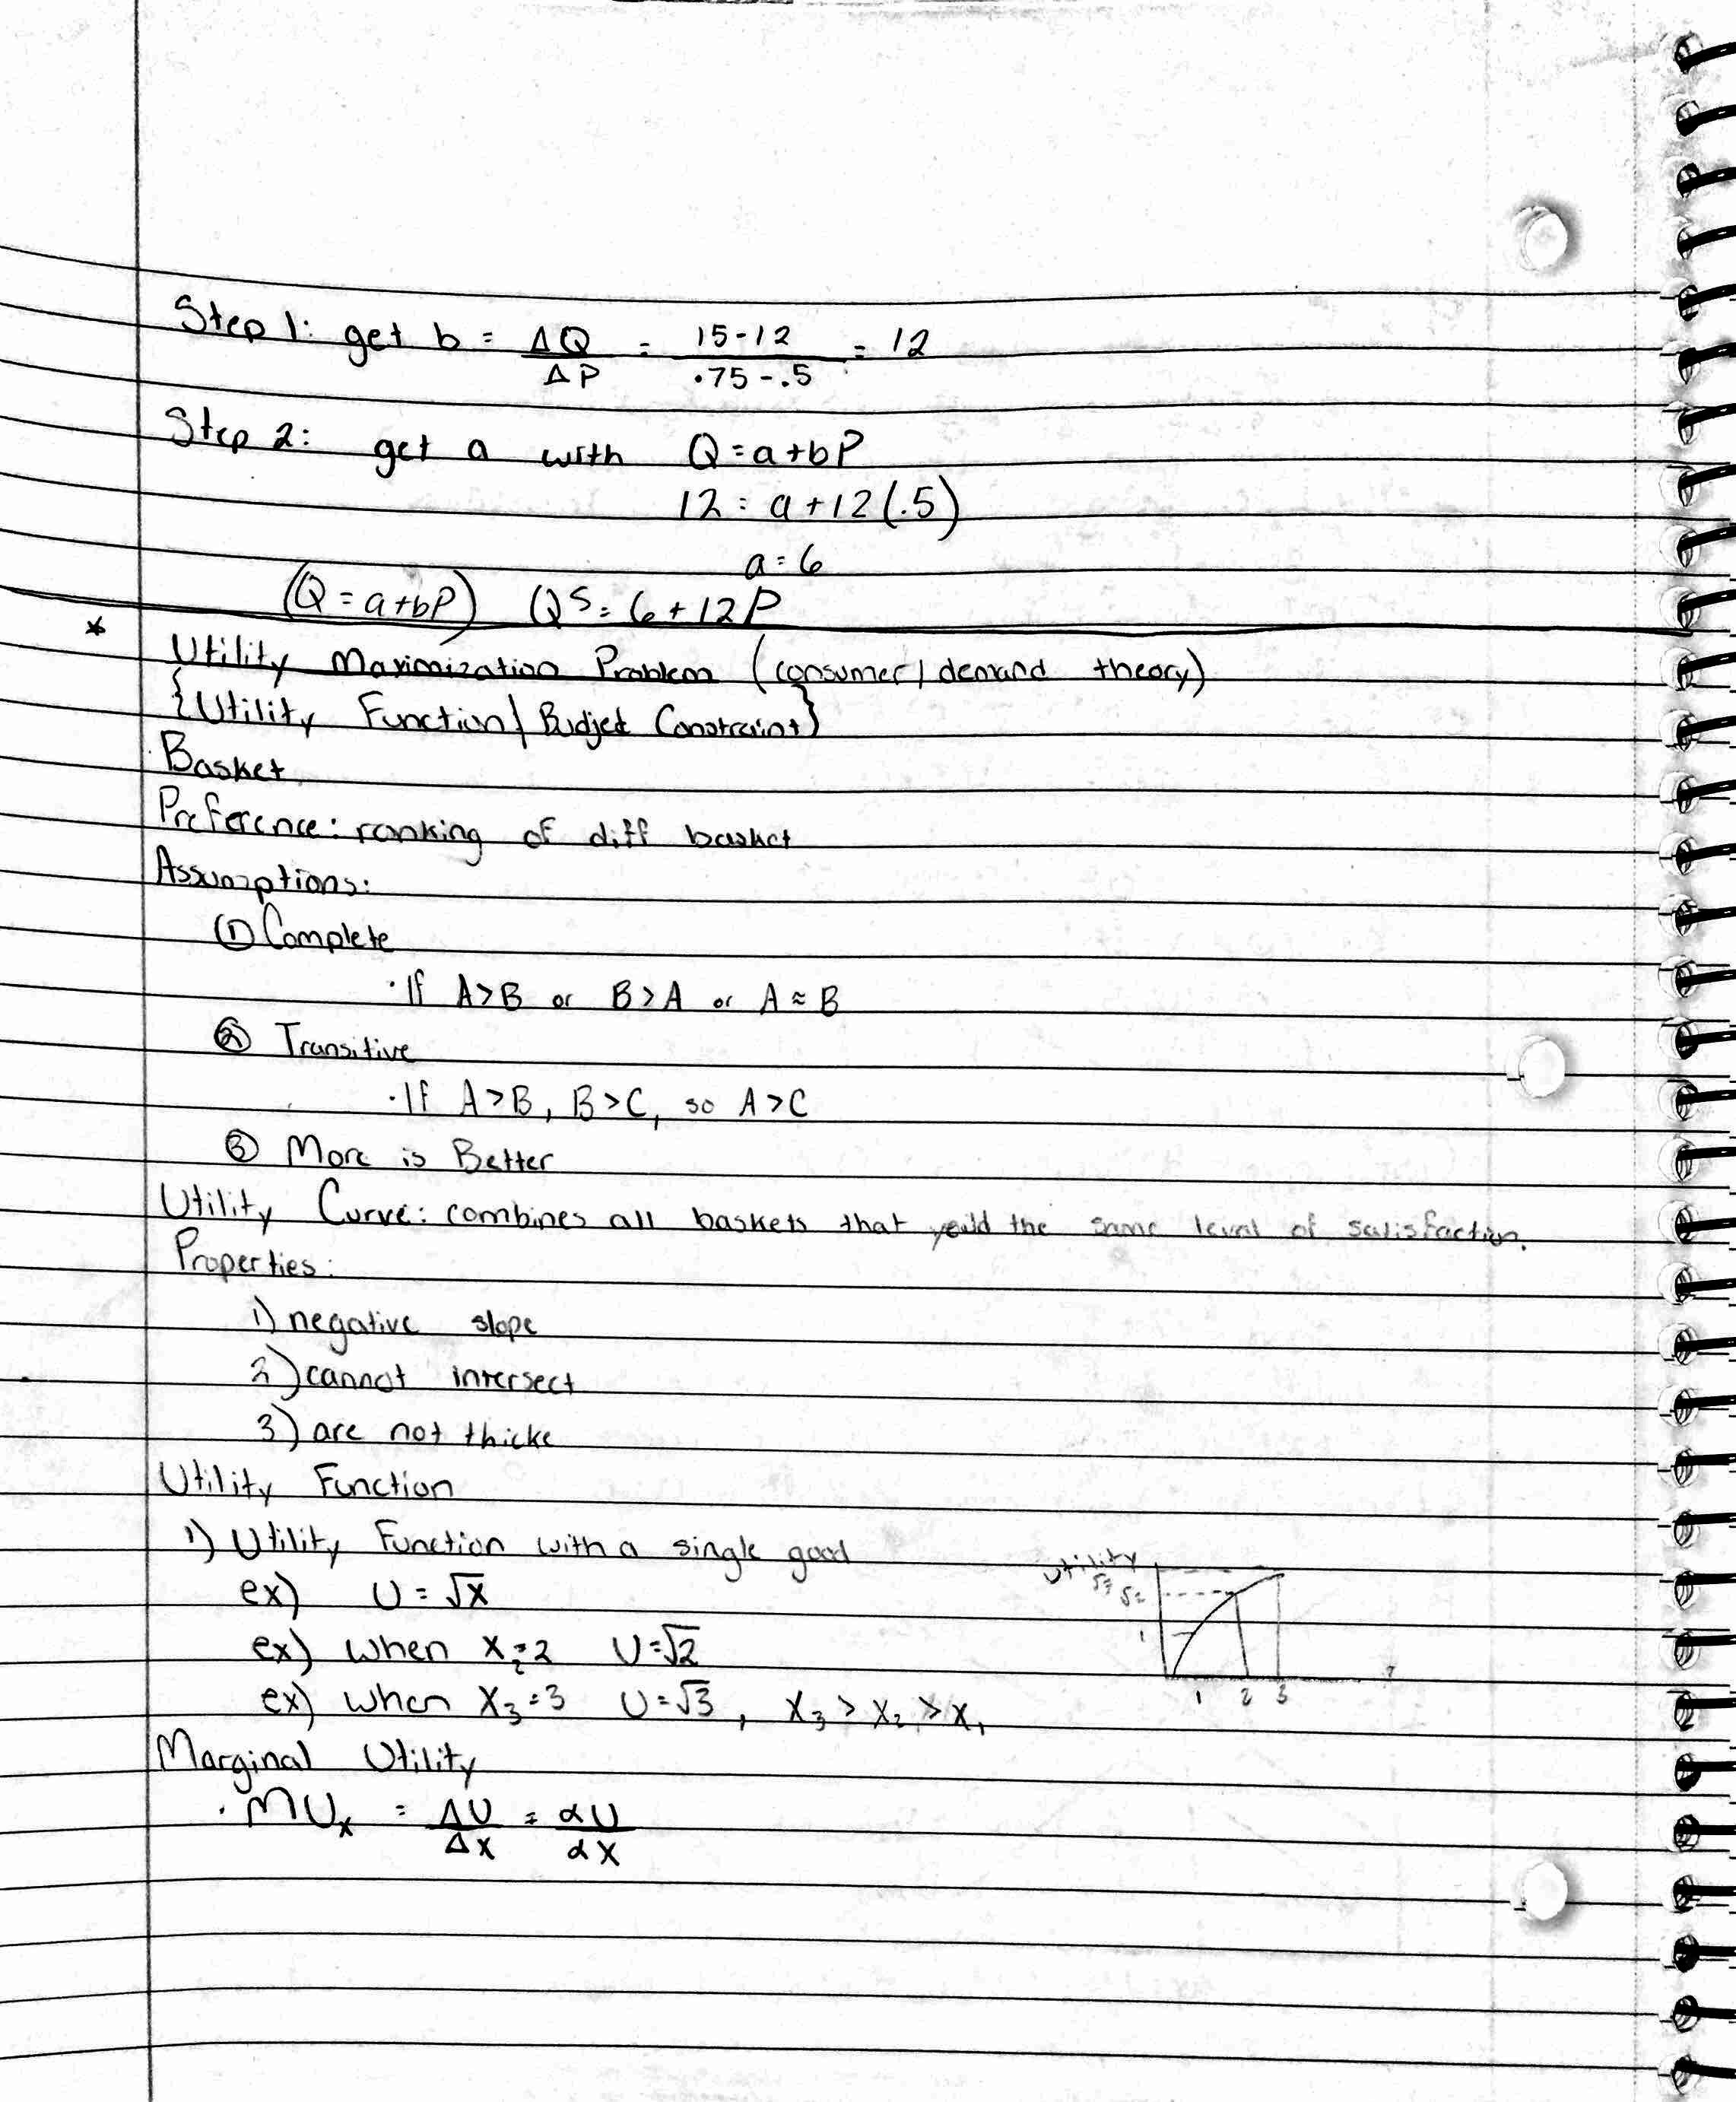 Step 1: get b = ΔQ/ΔP = 15-12/.75-.5 = 12
Step 2: get a with Q=a+bP
12 = a+12(.5)
a=6
(Q=a+bP) Q^S = 6+12P
* Utility Maximization Problem (consumer/demand theory)
{Utility Function/Budjet Constraint}
Basket
Preference: ranking of diff basket
Assumptions:
① Complete
· If A>B or B>A or A≈B
② Transitive
· If A>B, B>C, so A>C
③ More is Better
Utility Curve: combines all baskets that yeild the same level of satisfaction.
Properties:
1) negative slope
2) cannot intersect
3) are not thicke
Utility Function
1) Utility Function with a single good
ex) U=√x
ex) when x₂=2 U=√2
ex) when x₃=3 U=√3, x₃>x₂>x₁
Utility
√3
√2
1
1 2 3
Marginal Utility
· MUₓ = ΔU/Δx = αU/αx